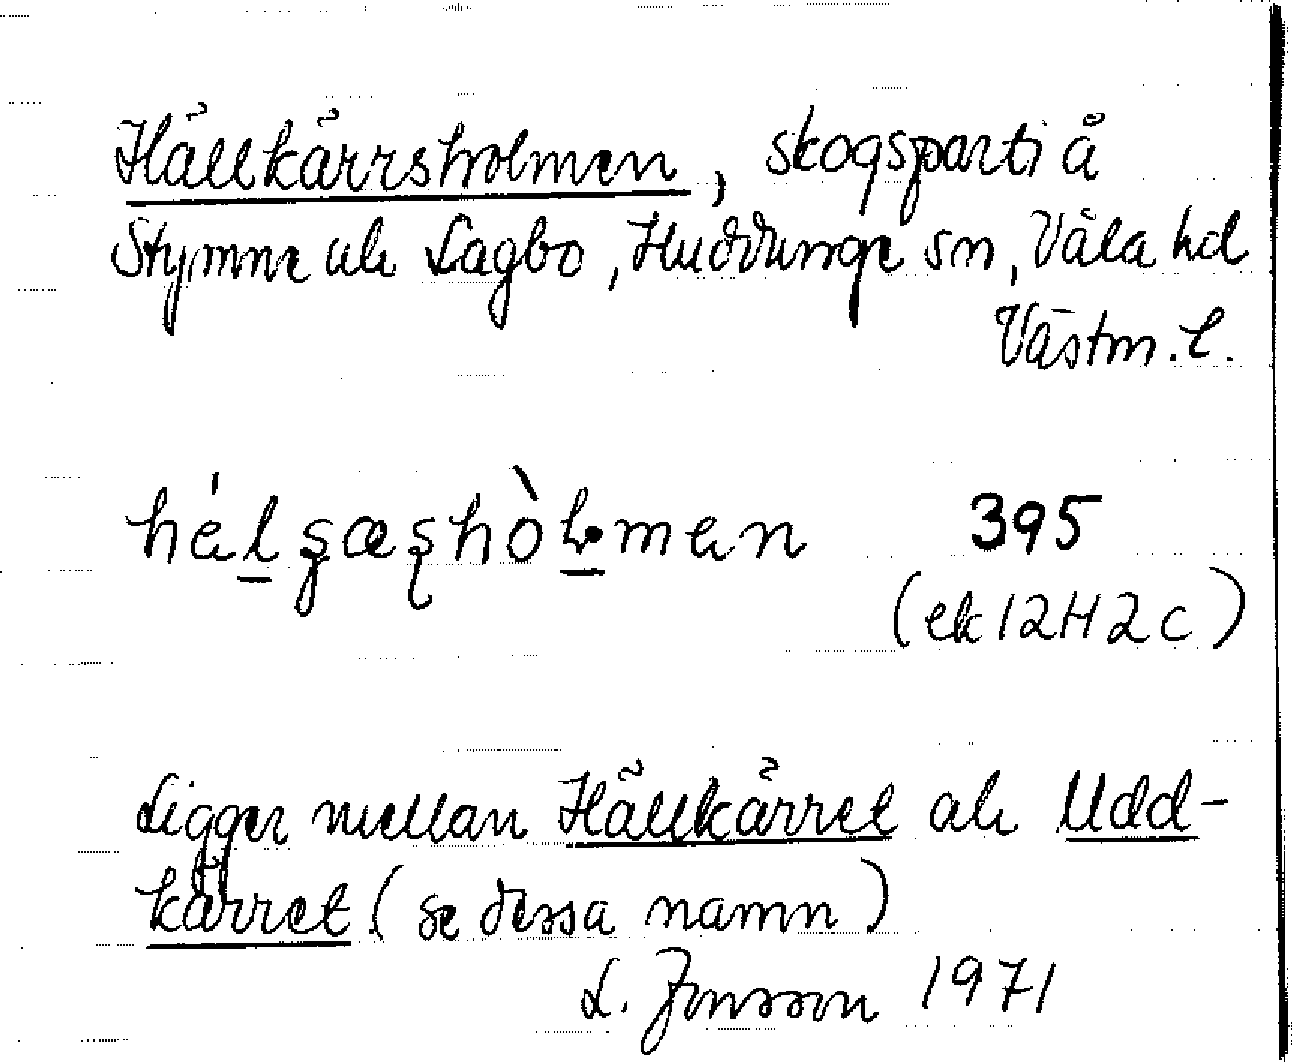 Hällkärrsholmen, skogsparti å
Stymne och Lagbo, Huddunge sn, Våla hd
Västm. l.
395
(ek 12H2c)
Ligger mellan Hällkärret och Udd-
kärret (se dessa namn)
L. Jonsson 1971